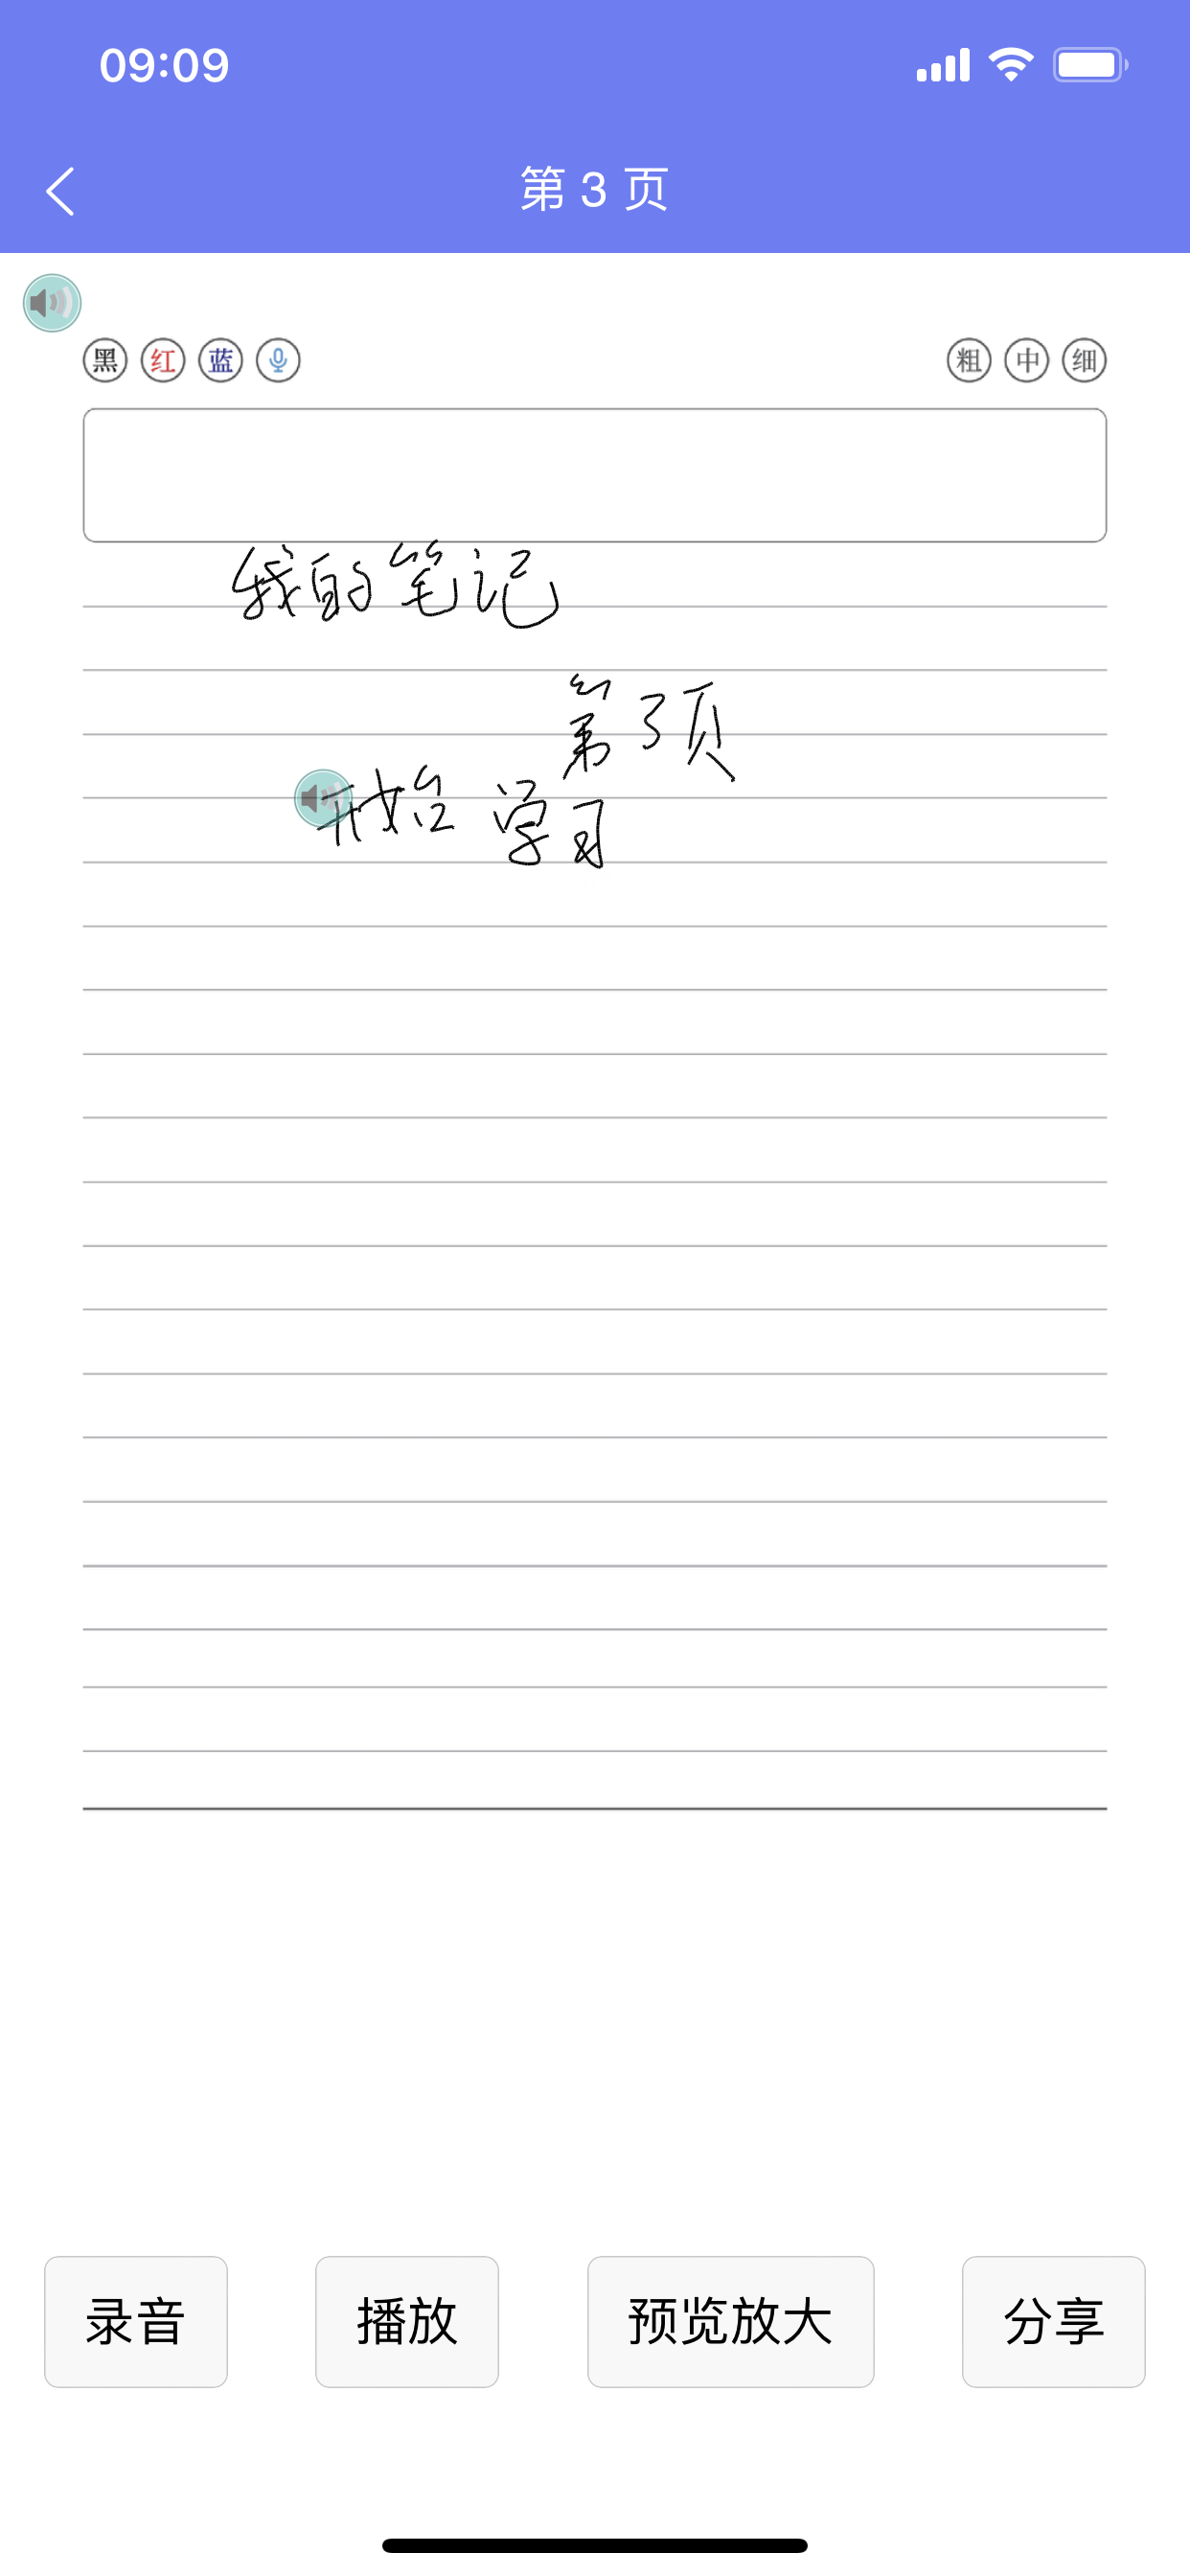 09:09
第 3 页
黑 红 蓝 粗 中 细
我的笔记
第3页
开始 学习
录音 播放 预览放大 分享